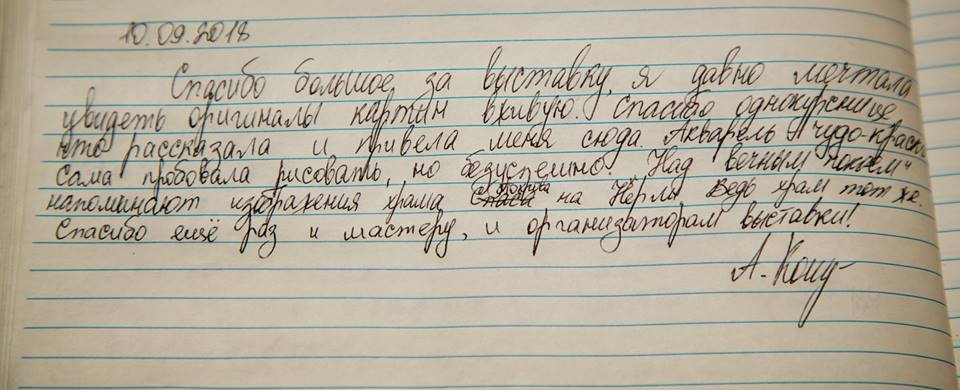 10.09.2018
Спасибо большое за выставку, я давно мечтала
увидеть оригиналы картин вживую. Спасибо однокурснице
что рассказала и привела меня сюда. Акварель чудо-краска
сама пробовала рисовать, но безуспешно. "Над вечным покоем"
напоминают изображения храма на Нерли Ведь храм тот же.
Спасибо ещё раз и мастеру, и организаторам выставки!
А.